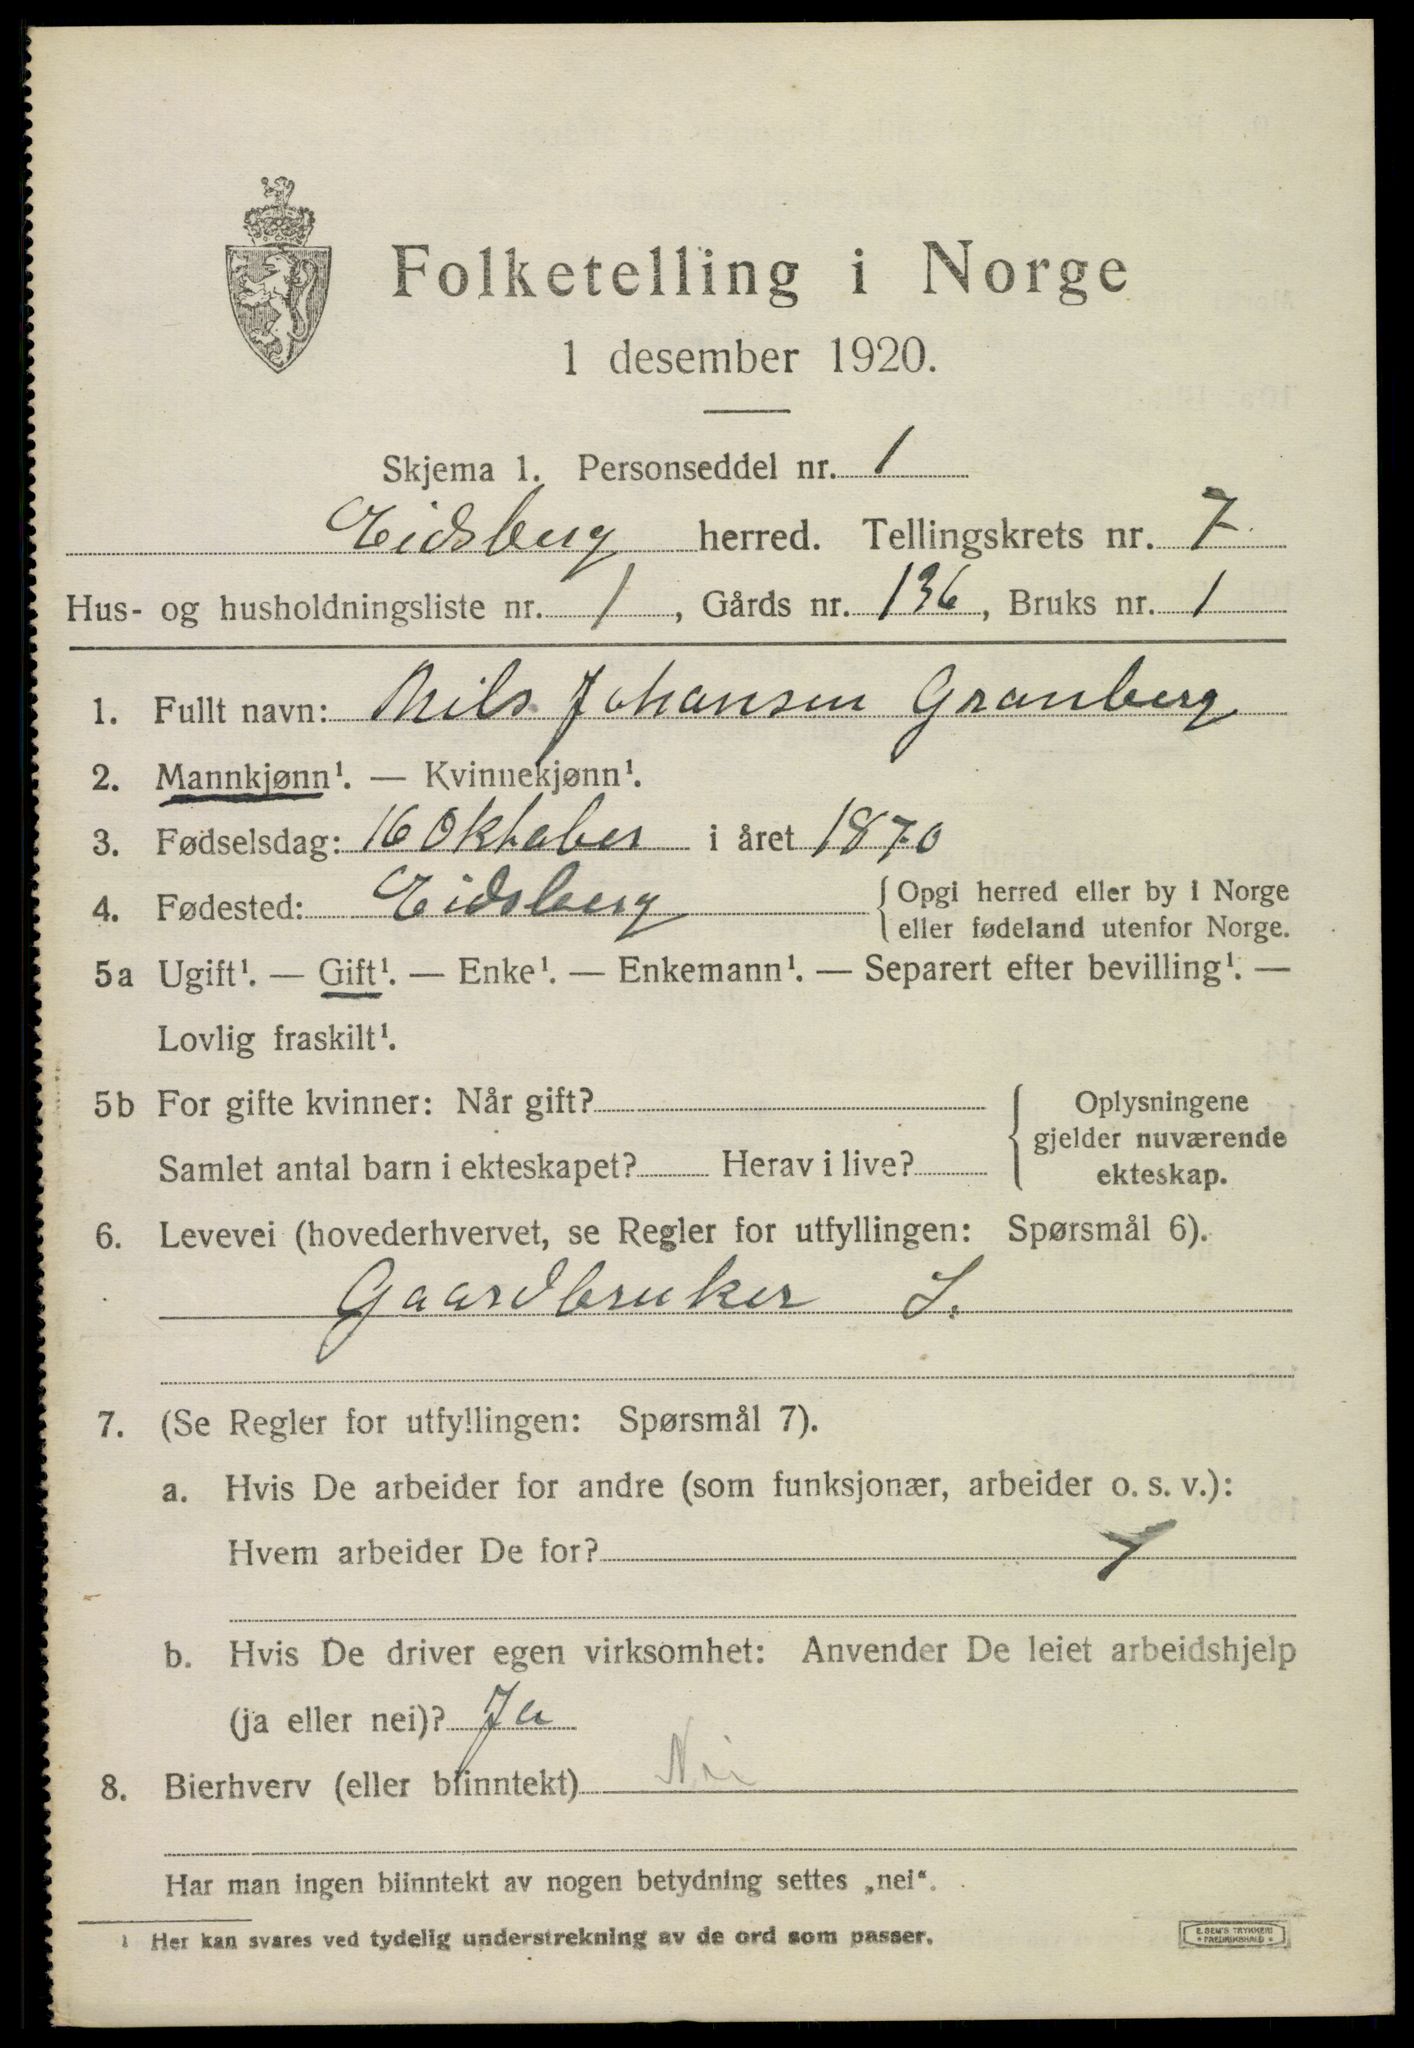 Folketelling i Norge
1 desember 1920.
Skjema 1. Personseddel nr. 1
Eidsberg herred. Tellingskrets nr. 7
Hus- og husholdningsliste nr. 1, Gårds nr. 136, Bruks nr. 1
1. Fullt navn: Nils Johansen Granberg
2. Mannkjønn¹. — Kvinnekjønn¹.
3. Fødselsdag: 16 Oktober i året 1870
4. Fødested: Eidsberg {Opgi herred eller by i Norge
eller fødeland utenfor Norge.
5a Ugift¹. — Gift¹. — Enke¹. — Enkemann¹. — Separert efter bevilling¹. —
Lovlig fraskilt¹.
5b For gifte kvinner: Når gift? { Oplysningene
gjelder nuværende
Samlet antal barn i ekteskapet? Herav i live? ekteskap.
6. Levevei (hovederhvervet, se Regler for utfyllingen: Spørsmål 6).
Gaardbruker S.
7. (Se Regler for utfyllingen: Spørsmål 7).
a. Hvis De arbeider for andre (som funksjonær, arbeider o. s. v.):
Hvem arbeider De for?
b. Hvis De driver egen virksomhet: Anvender De leiet arbeidshjelp
(ja eller nei)? Ja
8. Bierhverv (eller biinntekt) Nei
Har man ingen biinntekt av nogen betydning settes „nei“.
¹ Her kan svares ved tydelig understrekning av de ord som passer.
E. SEM'S TRYKKERI
* FREDRIKSHALD *